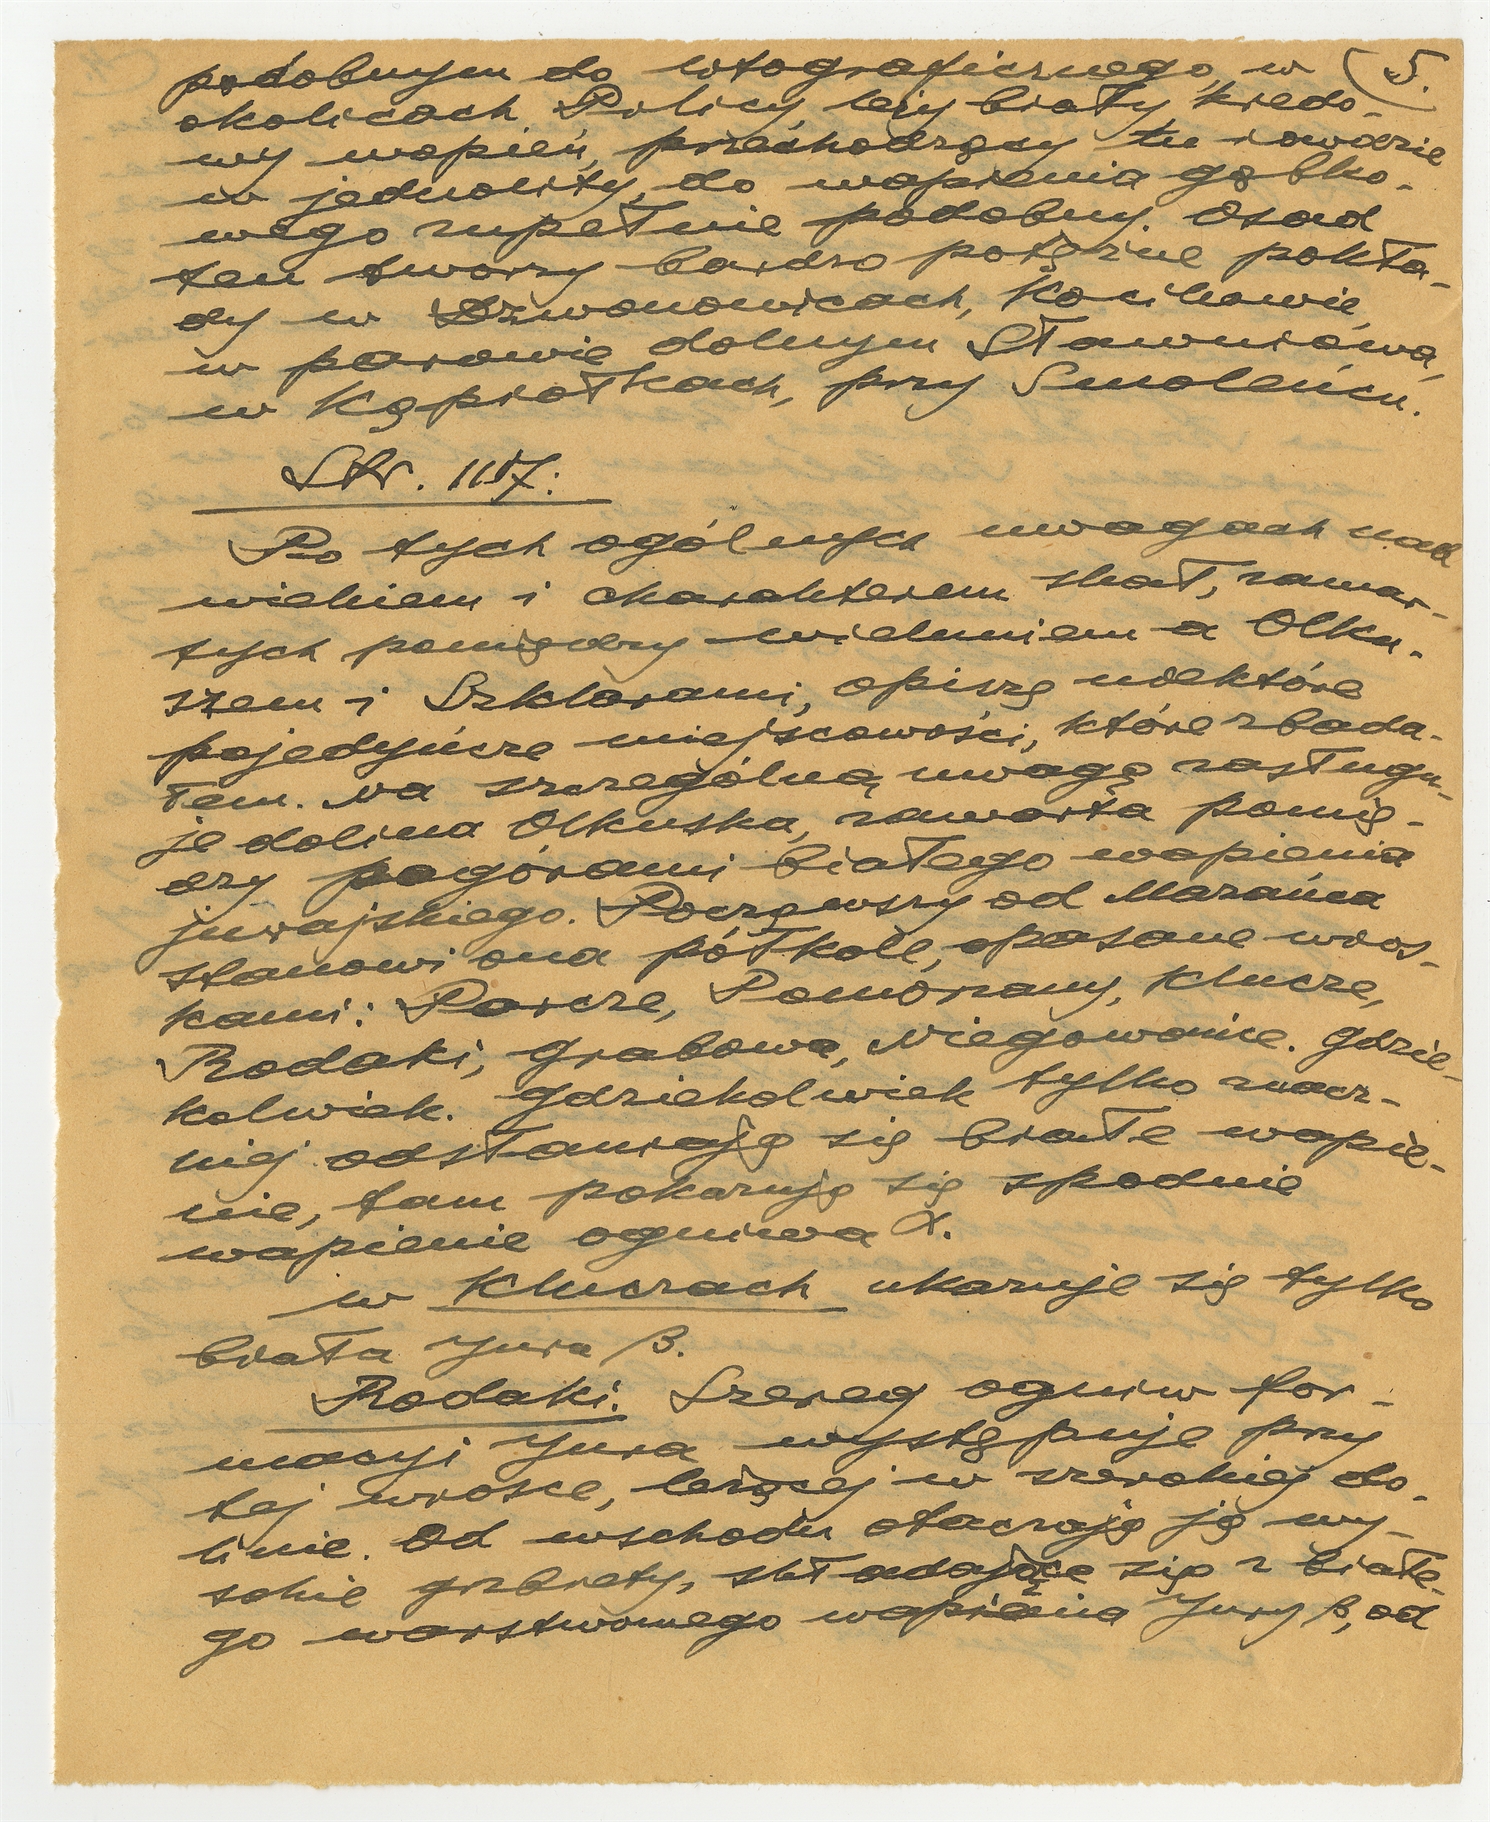 podobnym do litograficznego, w (5.
okolicach Policy, leży biały kredo-
wy wapień, przechodzący tu i owdzie
w jednolity, do wapienia gąbko-
wego zupełnie podobny. Osad
ten tworzy bardzo potężne pokła-
dy w Dzwonowicach, Kocikowie,
w parowie dolnym Sławniowa,
w Kąpiołkach, przy Smoleńcu.
Str. 117:
Po tych ogólnych uwagach nad
wiekiem i charakterem skał, zawar-
tych pomiędzy Wieluniem a Olku-
szem i Szklarami, opiszę niektóre
pojedyńcze miejscowości, które zbada-
łem. Na szczególną uwagę zasługu-
je dolina Olkuska, zawarta pomię-
dzy pagórami białego wapienia
jurajskiego. Począwszy od Mazańca
stanowi ona półkole, opasane wios-
kami: Parcze, Pomorzany, Klucze,
Rodaki, Grabowa, Niegowonice. Gdzie-
kolwiek. gdziekolwiek tylko znacz-
niej odsłaniają się białe wapie-
nie, tam pokazują się spodnie
wapienie ogniwa α.
w Kluczach ukazuje się tylko
biała Jura β.
Rodaki. Szereg ogniw for-
macyi Jura występuje przy
tej wiosce, leżącej w szerokiej do-
linie. Od wschodu otaczają ją wy-
sokie grzbiety, składające się z białe-
go warstwowego wapienia Jury β, od